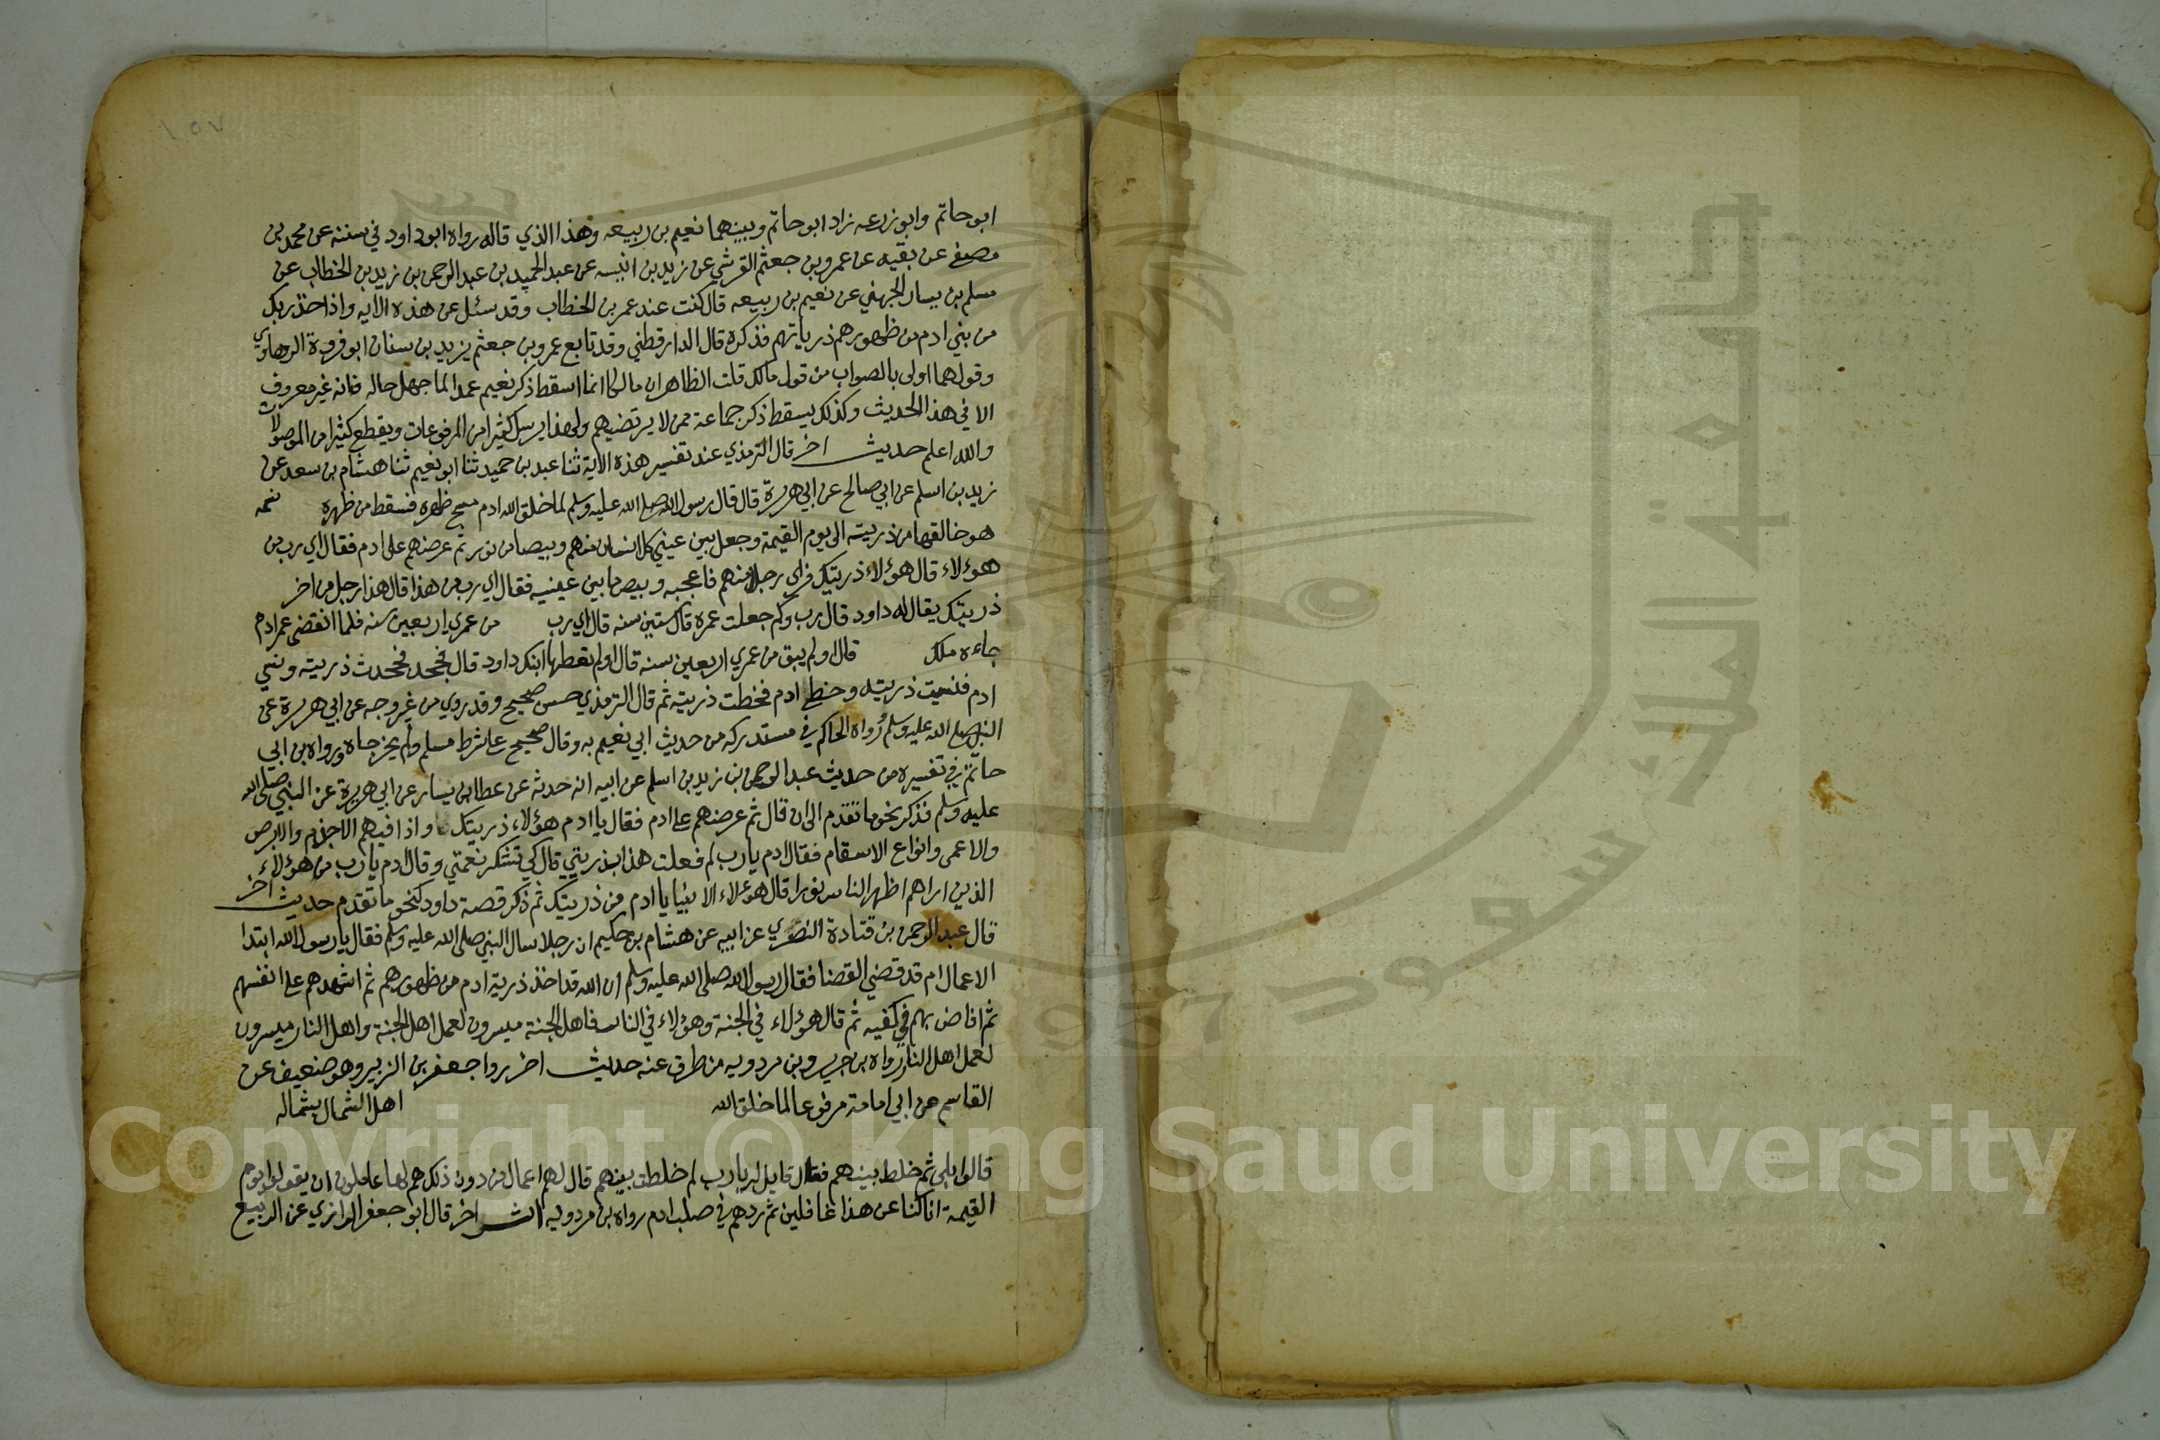 ١٥٧
ابو حاتم وابو زرعه زاد ابو حاتم وبينهما نعيم بن ربيعه وهذا الذي قاله رواه ابو داود في سننه عن محمد بن
مصفى عن بقيه عن عمرو بن جعثم القرشي عن زيد بن انيسه عن عبد الحميد بن عبد الرحمن بن زيد بن الخطاب عن
مسلم بن يسار الجهني عن نعيم بن ربيعه قال كنت عند عمر بن الخطاب وقد سئل عن هذه الايه واذ اخذ ربك
من بني ادم من ظهورهم ذرياتهم فذكره قال الدارقطني وقد تابع عمرو بن جعثم يزيد بن سنان ابو فروة الرهاوي
وقولهما اولى بالصواب من قول مالك قلت الظاهر ان مالكا انما اسقط ذكر نعيم عمدا لما جهل حاله فانه غير معروف
الا في هذا الحديث وكذلك يسقط ذكر جماعة ممن لا يرتضيهم ولهذا يرسل كثيرا من المرفوعات ويقطع كثيرا من الموصولات
والله اعلم حديث اخر قال الترمذي عند تفسير هذه الاية ثنا عبد بن حميد ثنا ابو نعيم ثنا هشام بن سعد عن
زيد بن اسلم عن ابي صالح عن ابي هريرة قال قال رسول الله صلى الله عليه وسلم لما خلق الله ادم مسح ظهره فسقط من ظهره نسمه
هو خالقها من ذريته الى يوم القيمة وجعل بين عيني كل انسان منهم وبيصا من نور ثم عرضهم على ادم فقال اي رب من
هؤلاء قال هؤلاء ذريتك فراى رجلا منهم فاعجبه وبيص ما بين عينيه فقال اي رب من هذا قال هذا رجل من اخر
ذريتك يقال له داود قال رب وكم جعلت عمره قال ستين سنه قال اي رب من عمري اربعين سنه فلما انقضى عمر ادم
جاءه ملك قال اولم يبق من عمري اربعين سنه قال اولم تعطها ابنك داود قال فجحد فجحدت ذريته ونسي
ادم فنسيت ذريته وخطي ادم فخطت ذريته ثم قال الترمذي حسن صحيح وقد روي من غير وجه عن ابي هريرة عن
النبي صلى الله عليه وسلم رواه الحاكم في مستدركه من حديث ابي نعيم به وقال صحيح على شرط مسلم ولم يخرجاه ورواه بن ابي
حاتم في تفسيره من حديث عبد الرحمن بن زيد بن اسلم عن ابيه انه حدثه عن عطا بن يسار عن ابي هريرة عن النبي صلى الله
عليه وسلم فذكر نحو ما تقدم الى ان قال ثم عرضهم على ادم فقال يا ادم هؤلاء ذريتك واذا فيهم الاجذم والابرص
والاعمى وانواع الاسقام فقال ادم يا رب لم فعلت هذا بذريتي قال كي تشكر نعمتي وقال ادم يا رب من هؤلاء
الذين اراهم اظهر الناس نورا قال هؤلاء الانبيا يا ادم من ذريتك ثم ذكر قصة داود كنحو ما تقدم حديث اخر
قال عبد الرحمن بن قتادة النضري عن ابيه عن هشام بن حكيم ان رجلا سال النبي صلى الله عليه وسلم فقال يا رسول الله ابتدا
الاعمال ام قد قضي القضا فقال رسول الله صلى الله عليه وسلم ان الله قد اخذ ذرية ادم من ظهورهم ثم اشهدهم على انفسهم
ثم افاض بهم في كفيه ثم قال هؤلاء في الجنة وهؤلاء في النار فاهل الجنة ميسرون لعمل اهل الجنة واهل النار ميسرون
لعمل اهل النار رواه بن جرير وبن مردويه من طرق عنه حديث اخر روا جعفر بن الزبير وهو ضعيف عن
القاسم عن ابي امامة مرفوعا لما خلق الله اهل الشمال بشماله
قالوا بلى ثم خلط بينهم فقال قايل له يا رب لم خلطت بينهم قال لهم اعمال من دون ذلك هم لها عاملون ان يقولوا يوم
القيمة انا كنا عن هذا غافلين ثم ردهم في صلب ادم رواه بن مردويه اثر اخر قال ابو جعفر الرازي عن الربيع
جامعة الملك سعود
1957
Copyright © King Saud University